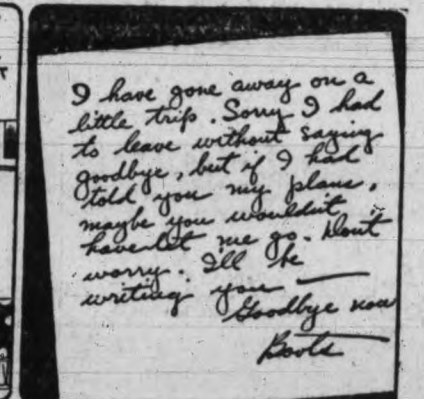 I have gone away on a
little trip. Sorry I had
to leave without saying
goodbye, but if I had
told you my plans,
maybe you wouldn't
have let me go. Don't
worry. I'll be
writing you —
Goodbye now
Boots